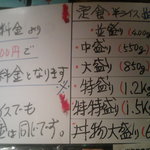 料金より
00円で
料金となります
イスでも
金は同じです。
定食・半ライス
・並盛り (400g
・中盛り (550g)
・大盛り (850g)
・特盛り (1.2K
・特特盛り (1.5K
・丼物大盛り (6